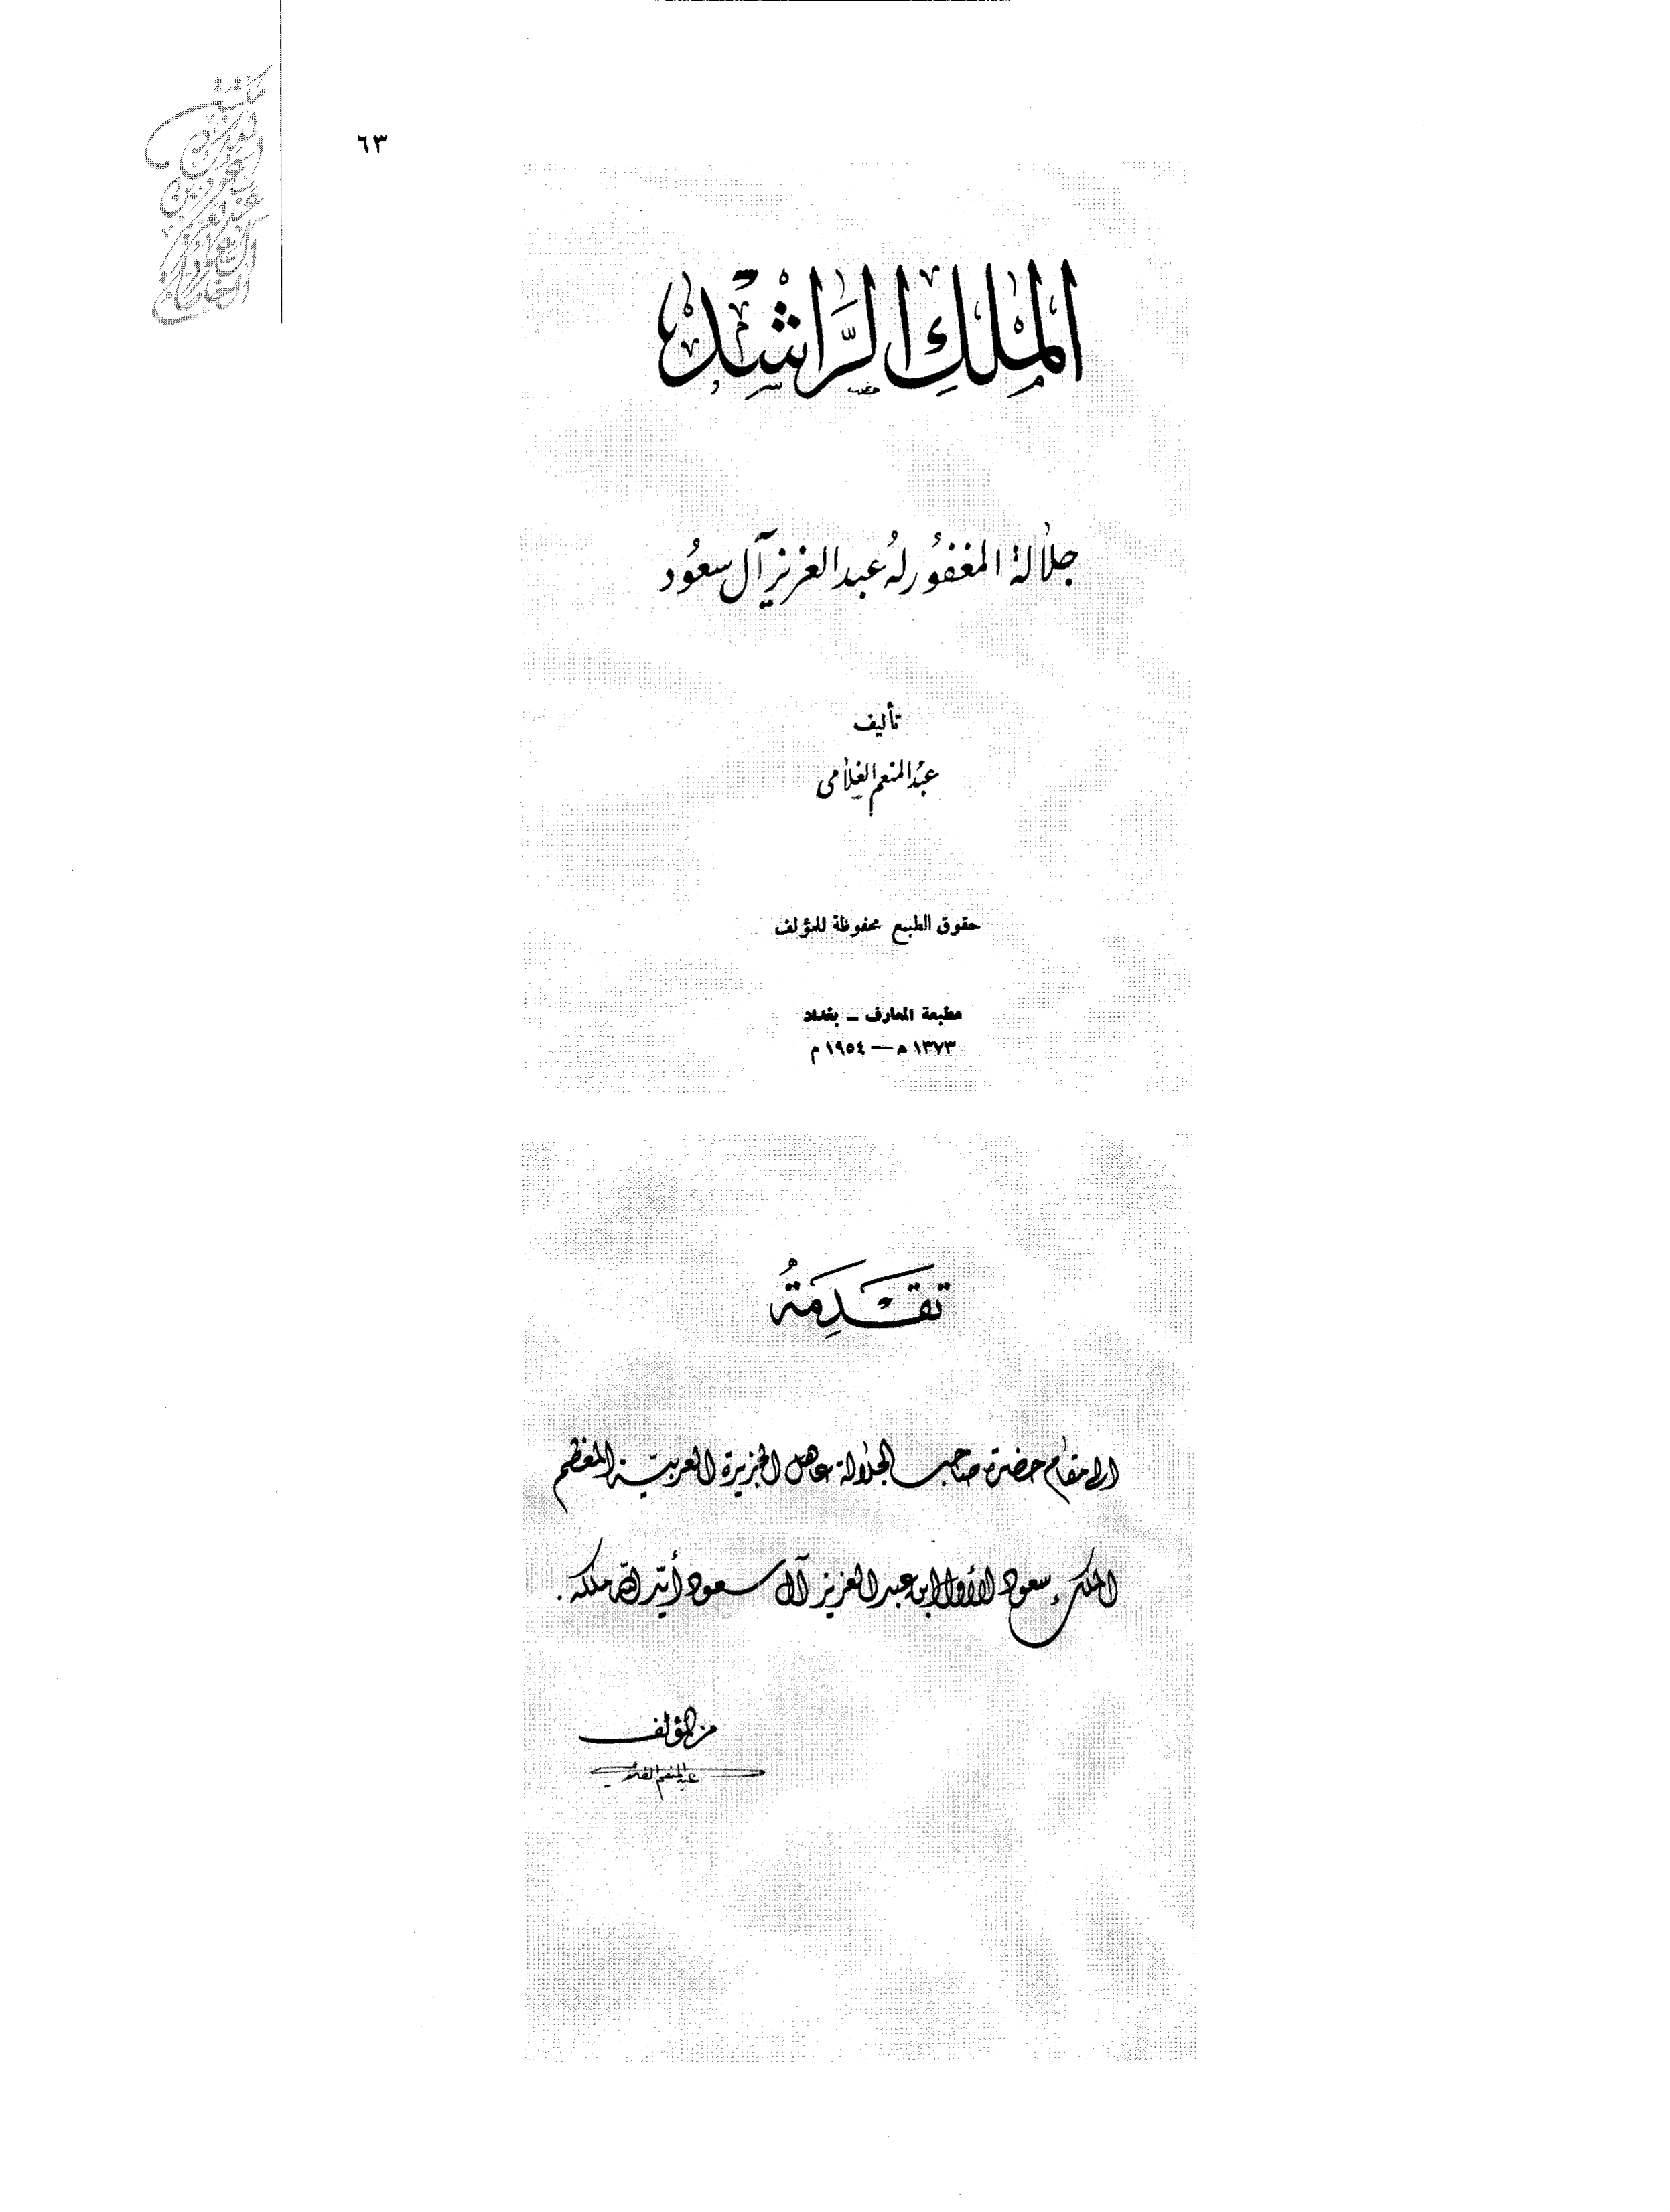 ٦٣
المَلِك الرَّاشِد
جلالة المغفُور لهُ عبد العزيز آل سعُود
تأليف
عبد المنعم الغلامى
حقوق الطبع محفوظة للمؤلف
مطبعة المعارف ــ بغداد
١٣٧٣ ه — ١٩٥٤ م
تقْدِمَةُ
إلى مقام حضرة صاحب الجلالة عاهل الجزيرة العربيّة المعظم
الملك سعود الأول ابن عبد العزيز آل سعود أيّد اللّه ملكه .
من المؤلف
عبد المنعم الغلامي